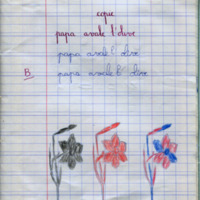 copie
papa avale l'olive
papa avale l'olive
B. papa avale l'olive